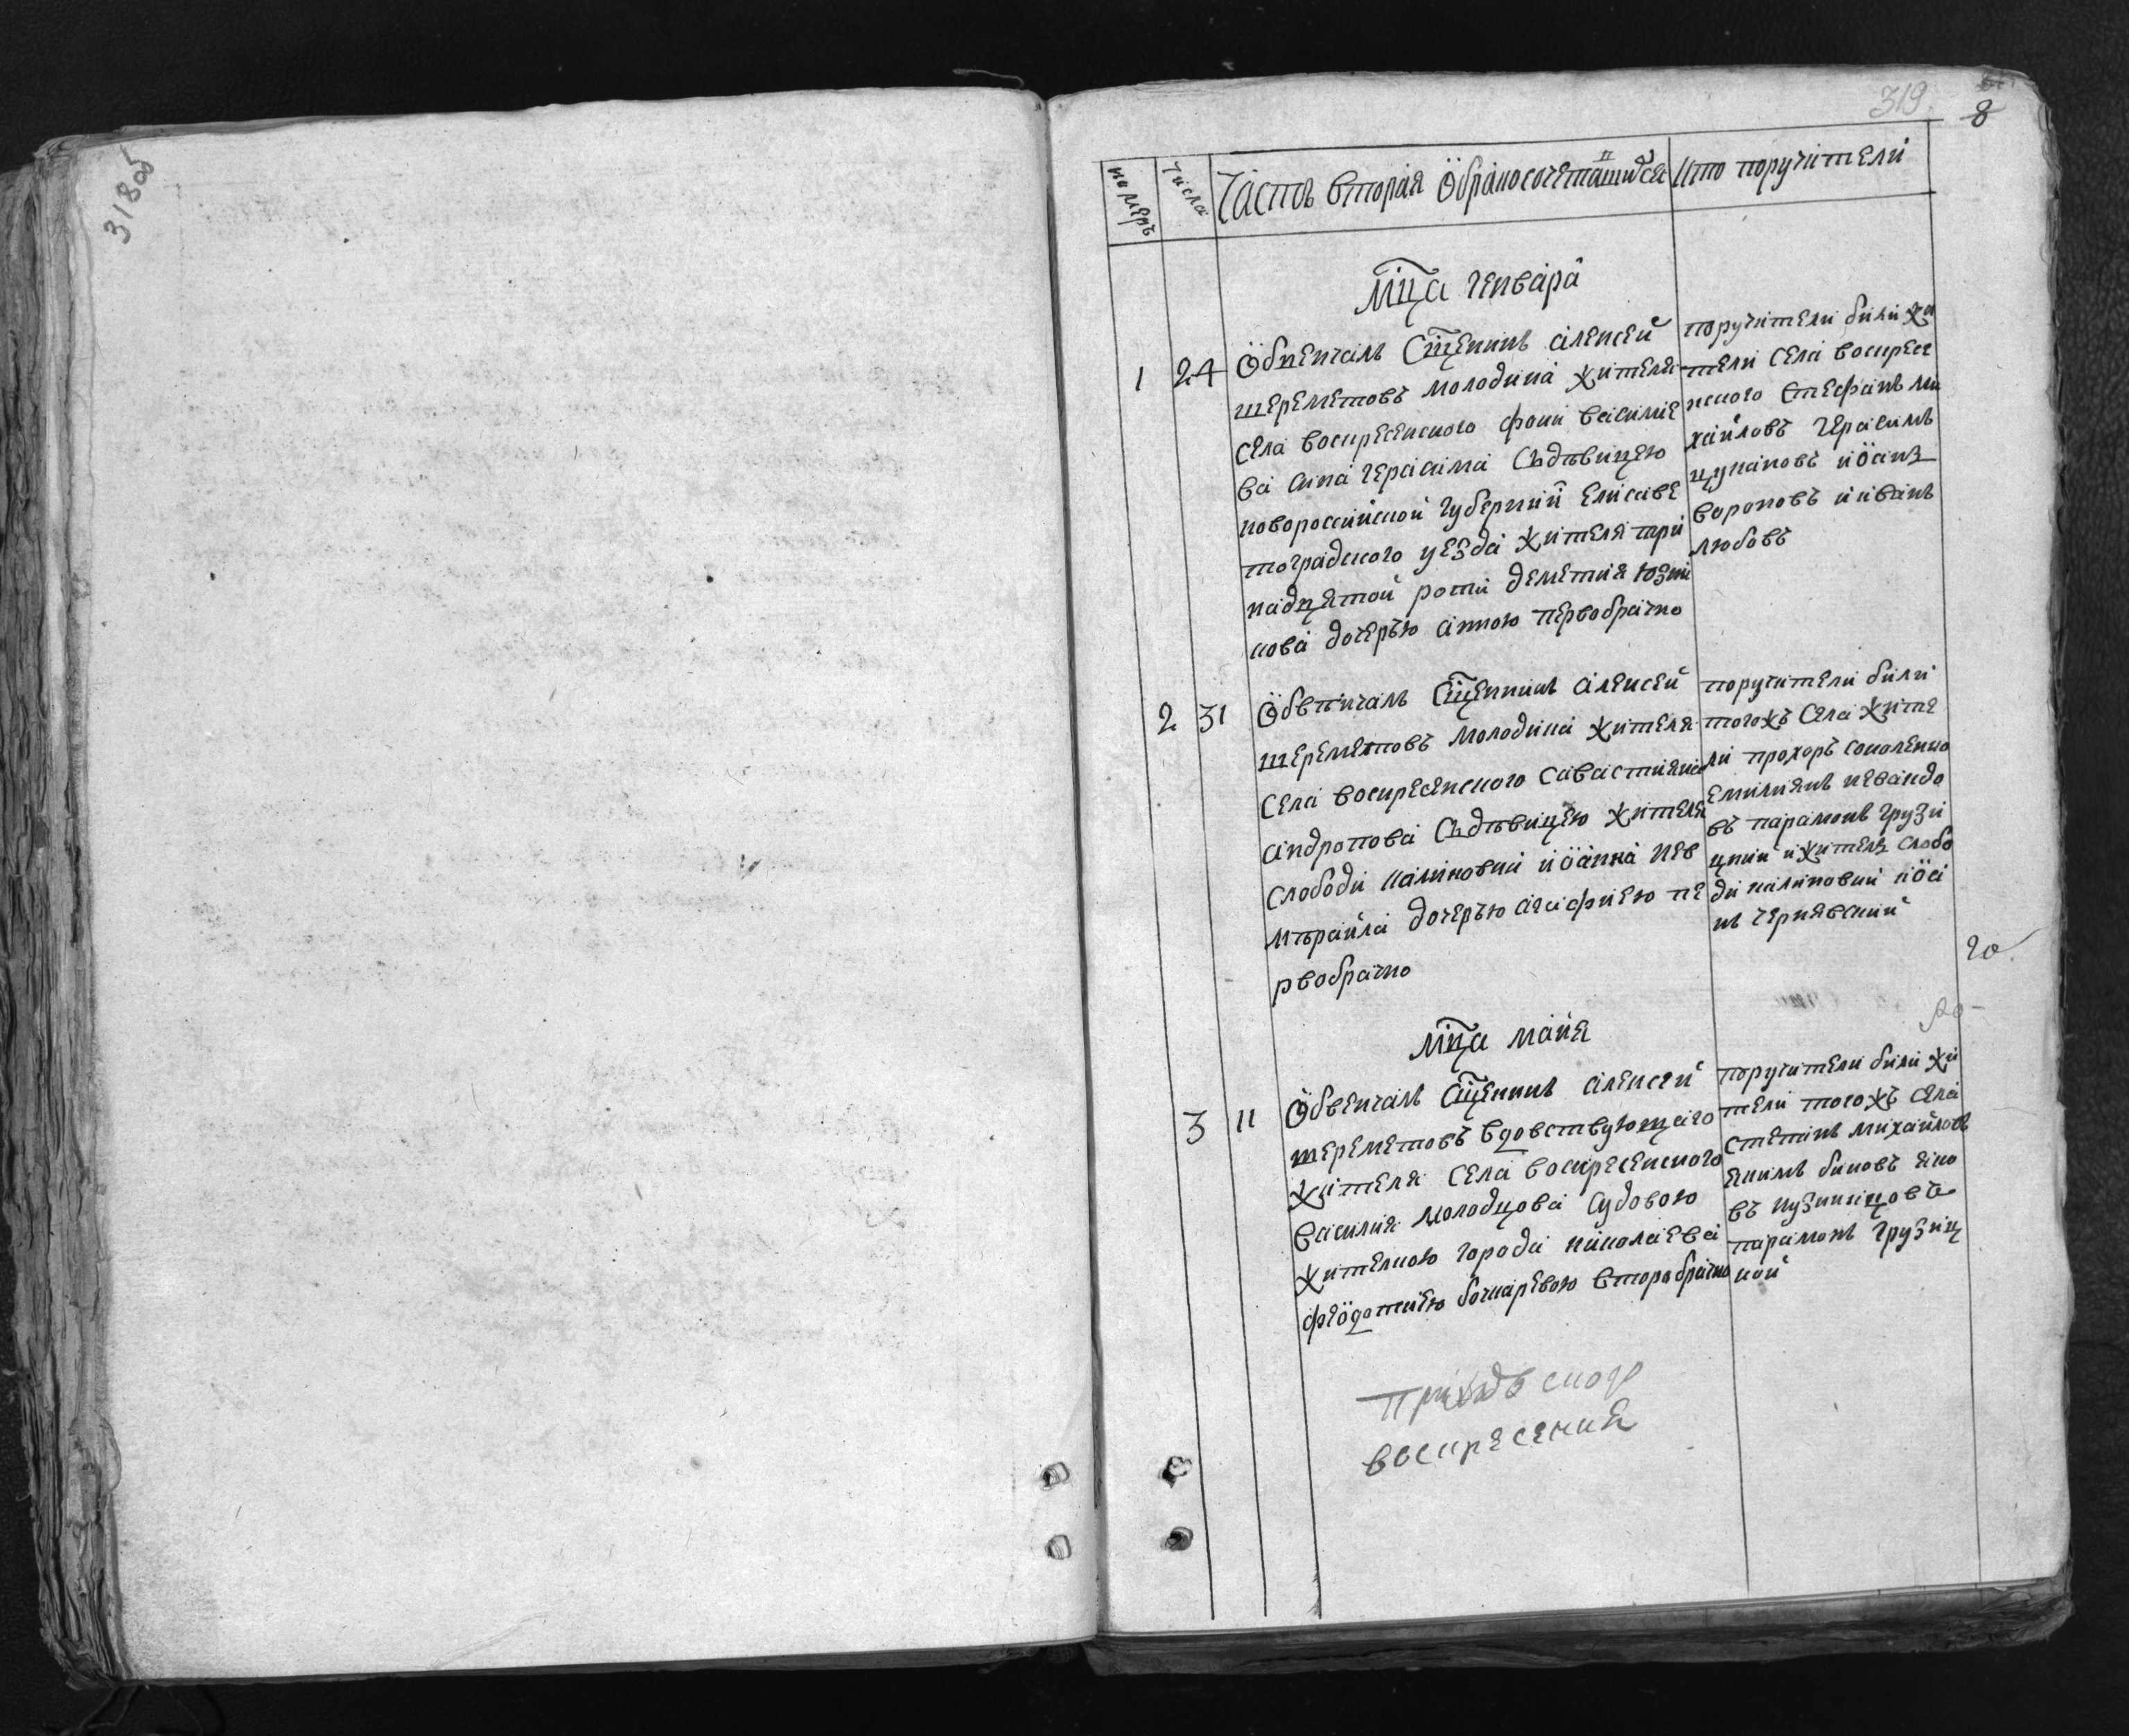 318об
319.
8
номеръ
числа
Часть вторая о бракосочетавшихся
кто поручители
Мца генваря
1
24
Обвенчалъ Сщенникъ алексей
шереметовъ молодика жителя
села воскресенского фоки василие
ва сина герасима съдѣвицею
новороссийской губернии елисаве
тоградского уезда жителя три
надцятой роти деметия кузми
нова дочерью анною первобрачно
поручители били жи
тели села воскресе
нского стефанъ ми
хайловъ герасимъ
цукановъ иоанъ
вороновъ и иванъ
любовъ
2
31
Обвѣнчалъ Сщенникъ алексей
шереметовъ молодика жителя
села воскресенского савастияна
андропова съдѣвицею жителя
слободи калиновки иоанна кев
мърайла дочерью агафиею пе
рвобрачно
поручители били
тогожъ села жите
ли прохоръ соколенко
емилиянъ невандо
въ парамонъ грузи
цкий и житель слобо
ди калиновки иоа
нъ чернявский
20
Мца майя
3
11
Обвенчалъ Сщенникъ алексей
шереметовъ вдовствующаго
жителя села воскресенского
василия молодцова судовою
жителкою города николаева
феодотиею бочкаревою второбрачно
поручители били жи
тели тогожъ села
степанъ михайловъ
якимъ биковъ яко
въ кузнишцовъ
парамонъ грузиц
кой
воскресения